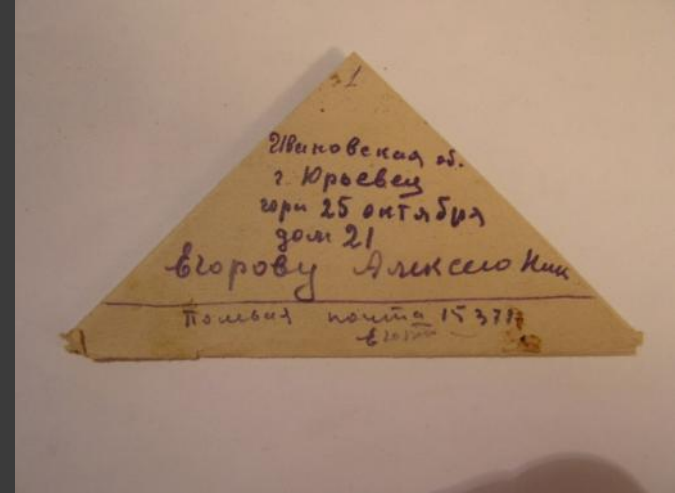 1
Ивановская об.
г. Юрьевец
гора 25 октября
дом 21
Егорову Алексею Ник
Полевая почта 15371